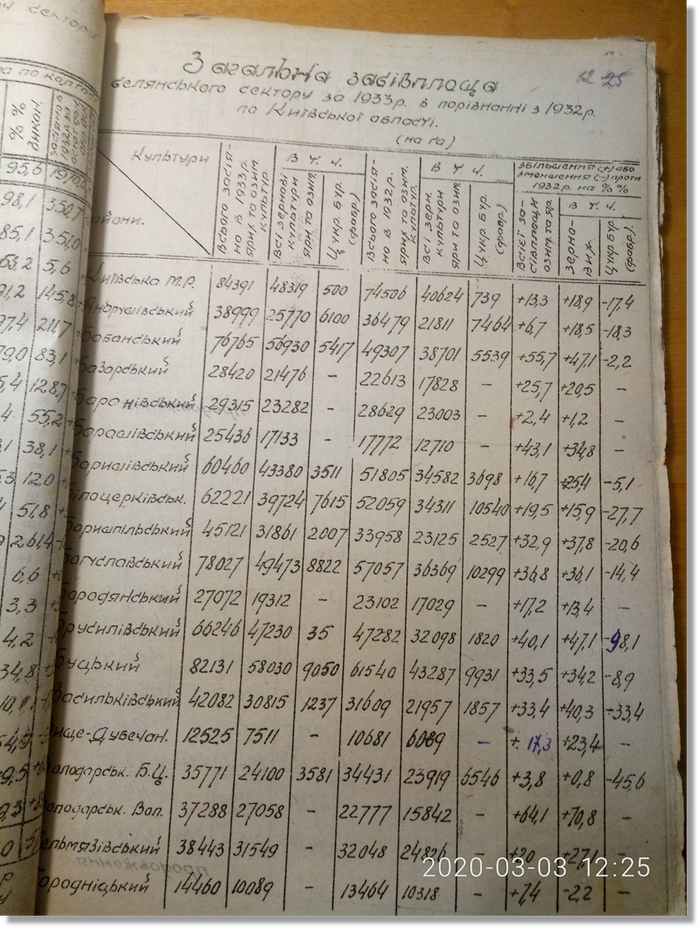 12 25
Загальна засівплоща
селянського сектору за 1933р. в порівнанні з 1932р.
по Київської области.
(на га)
Культури
райони.
Всього засія-но в 1933р. яру та озим. культур.
В т. ч.
Всі зернові культури яри та озим
Цукр. бур. (фабр.)
Всього засія-но в 1932р. яру та озим. культур.
В т. ч.
Всі зерн. культури яри та озим
Цукр. бур. (фабр.)
Збільшення (+) або зменшення (-) проти 1932р. на % %
Всієї за-сівплощи озим. та яр.
В т. ч.
Зерно-вих
Цукр. бур. (фабр.)
Київська М.Р. 84391 48319 500 74506 40624 739 +13,3 +18,9 -17,4
Андрушівський 38999 25770 6100 36479 21811 7464 +6,7 +18,5 -18,3
Бабанський 76765 56930 5417 49307 38701 5539 +55,7 +47,1 -2,2
Базарський 28420 21476 - 22613 17828 - +25,7 +20,5 -
Баранівський 29315 23282 - 28629 23003 - +2,4 +1,2 -
Барашівський 25436 17133 - 17772 12710 - +43,1 +34,8 -
60460 43380 3511 51805 34582 3698 +16,7 +25,4 -5,1
Білоцерківськ. 62221 39724 7615 52059 34311 10540 +19,5 +15,9 -27,7
Бориспільський 45121 31861 2007 33958 23125 2527 +32,9 +37,8 -20,6
Богуславський 78027 49473 8822 57057 36369 10299 +36,8 +36,1 -14,4
Бородянський 27072 19312 - 23102 17029 - +17,2 +13,4 -
Брусилівський 66246 47230 35 47282 32098 1820 +40,1 +47,1 -98,1
Буцький 82131 58030 9050 61540 43287 9931 +33,5 +34,2 -8,9
Васильківський 42082 30815 1237 31609 21957 1857 +33,4 +40,3 -33,4
Вище-Дубечан. 12525 7511 - 10681 6089 - +17,3 +23,4 -
Володарськ. Б.Ц. 35771 24100 3581 34431 23919 6546 +3,8 +0,8 -45,6
Володарськ. Вол. 37288 27058 - 22777 15842 - +64,1 +70,8 -
Гельмязівський 38443 31549 - 32048 24826 - +20 +27,1 -
Городніцький 14460 10089 - 13464 10318 - +7,4 -2,2 -
2020-03-03 12:25